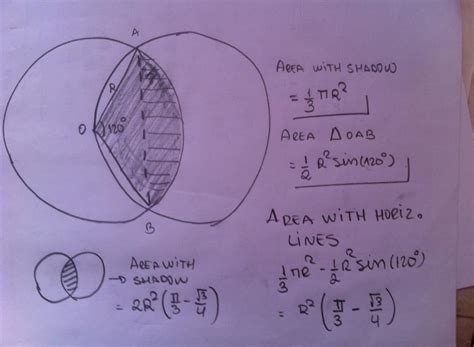 A
R
O
120°
B
AREA WITH SHADOW
= 1/3 πR²
AREA Δ OAB
= 1/2 R² sin(120°)
AREA WITH HORIZ.
LINES
1/3 πR² - 1/2 R² sin(120°)
= R² (π/3 - √3/4)
AREA WITH
→ SHADOW
= 2R² (π/3 - √3/4)